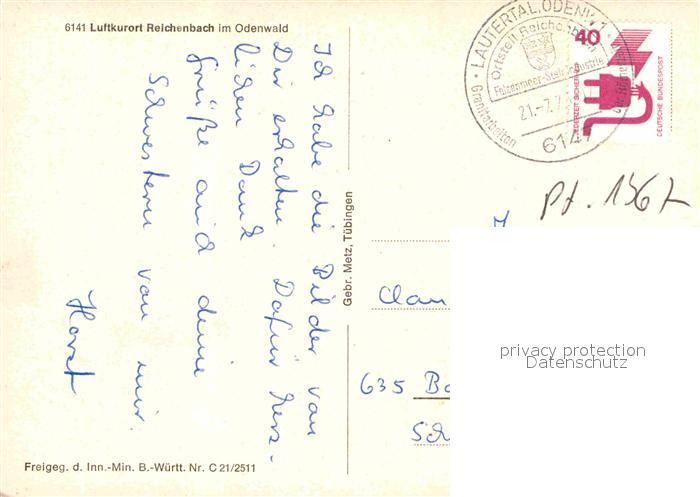 6141 Luftkurort Reichenbach im Odenwald
Ich habe die Bilder von
Dir erhalten. Dafür herz-
lichen Dank
Grüße auch deine
Schwestern von mir.
Horst
Freigeg. d. Inn.-Min. B.-Württ. Nr. C 21/2511
Gebr. Metz, Tübingen
LAUTERTAL, ODENW. 1
Ortsteil Reichenbach
Felsenmeer-Steinindustrie
Granitarbeiten
21.-7.7
6147
40
JEDERZEIT SICHERHEIT
DEUTSCHE BUNDESPOST
Pf. 1567
Clau
635 Ba
Sch
privacy protection
Datenschutz